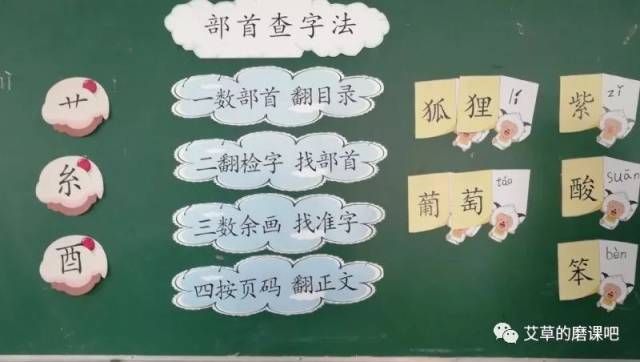 部首查字法
艹
糸
酉
一数部首 翻目录
二翻检字 找部首
三数余画 找准字
四按页码 翻正文
狐狸 lí
葡萄 táo
紫 zǐ
酸 suān
笨 bèn
艾草的磨课吧